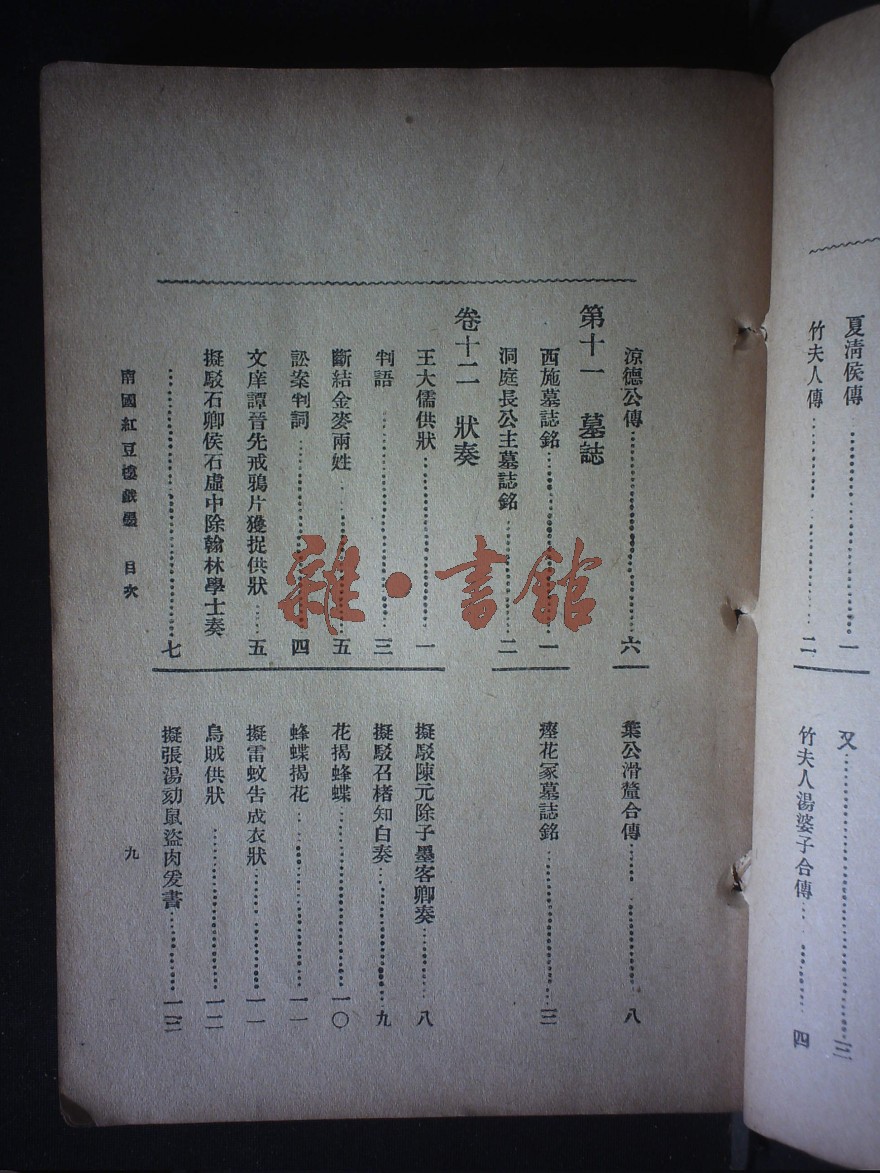 夏清侯傳……一
竹夫人傳……二
又……三
竹夫人湯婆子合傳……四
涼德公傳……六
第十一 墓誌
西施墓誌銘……一
洞庭長公主墓誌銘……二
卷十二 狀奏
王大儒供狀……一
判語……三
斷結金麥兩姓……五
訟案判詞……四
文庠譚晉先戒鴉片獲捉供狀……五
擬駁石卿侯石虛中除翰林學士奏
……七
葉公滑釐合傳……八
瘞花冢墓誌銘……三
擬駁陳元除子墨客卿奏……八
擬駁召楮知白奏……九
花揭蜂蝶……一〇
蜂蝶揭花……一一
擬雷蚊告成衣狀……一一
烏賊供狀……一二
擬張湯劾鼠盜肉爰書……一三
南國紅豆樓戲墨 目次 九
雜·書館